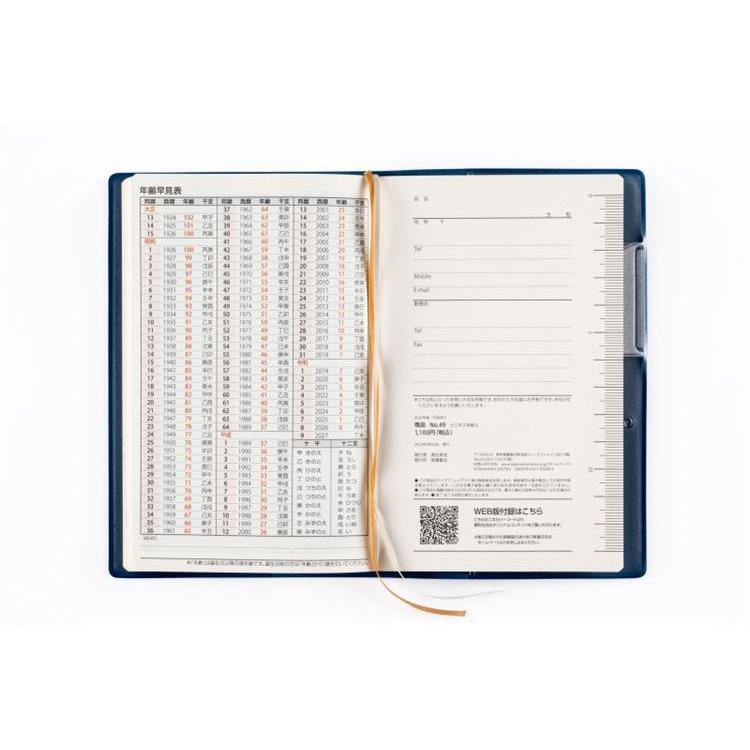 年齢早見表
邦暦 西暦 年齢 干支
大正
13 1924 102 甲子
14 1925 101 乙丑
15 1926 100 丙寅
昭和
1 1926 100 丙寅
2 1927 99 丁卯
3 1928 98 戊辰
4 1929 97 己巳
5 1930 96 庚午
6 1931 95 辛未
7 1932 94 壬申
8 1933 93 癸酉
9 1934 92 甲戌
10 1935 91 乙亥
11 1936 90 丙子
12 1937 89 丁丑
13 1938 88 戊寅
14 1939 87 己卯
15 1940 86 庚辰
16 1941 85 辛巳
17 1942 84 壬午
18 1943 83 癸未
19 1944 82 甲申
20 1945 81 乙酉
21 1946 80 丙戌
22 1947 79 丁亥
23 1948 78 戊子
24 1949 77 己丑
25 1950 76 庚寅
26 1951 75 辛卯
27 1952 74 壬辰
28 1953 73 癸巳
29 1954 72 甲午
30 1955 71 乙未
31 1956 70 丙申
32 1957 69 丁酉
33 1958 68 戊戌
34 1959 67 己亥
35 1960 66 庚子
36 1961 65 辛丑
MEMO
邦暦 西暦 年齢 干支
37 1962 64 壬寅
38 1963 63 癸卯
39 1964 62 甲辰
40 1965 61 乙巳
41 1966 60 丙午
42 1967 59 丁未
43 1968 58 戊申
44 1969 57 己酉
45 1970 56 庚戌
46 1971 55 辛亥
47 1972 54 壬子
48 1973 53 癸丑
49 1974 52 甲寅
50 1975 51 乙卯
51 1976 50 丙辰
52 1977 49 丁巳
53 1978 48 戊午
54 1979 47 己未
55 1980 46 庚申
56 1981 45 辛酉
57 1982 44 壬戌
58 1983 43 癸亥
59 1984 42 甲子
60 1985 41 乙丑
61 1986 40 丙寅
62 1987 39 丁卯
63 1988 38 戊辰
64 1989 37 己巳
平成
1 1989 37 己巳
2 1990 36 庚午
3 1991 35 辛未
4 1992 34 壬申
5 1993 33 癸酉
6 1994 32 甲戌
7 1995 31 乙亥
8 1996 30 丙子
9 1997 29 丁丑
10 1998 28 戊寅
11 1999 27 己卯
12 2000 26 庚辰
邦暦 西暦 年齢 干支
13 2001 25
14 2002 24
15 2003 23
16 2004 22
17 2005 21
18 2006 20
19 2007 19
20 2008 18
21 2009 17
22 2010 16
23 2011 15
24 2012 14
25 2013 13
26 2014 12 甲午
27 2015 11 乙未
28 2016 10 丙申
29 2017 9 丁酉
30 2018 8 戊戌
31 2019 7 己亥
令和
1 2019 7 己亥
2 2020 6 庚子
3 2021 5 辛丑
4 2022 4 壬寅
5 2023 3 癸卯
6 2024 2 甲辰
7 2025 1 乙巳
8 2026 0 丙午
9 2027 丁未
十干 十二支
甲 きのえ 子 ね
乙 きのと 丑 うし
丙 ひのえ 寅 とら
丁 ひのと 卯 う
戊 つちのえ 辰 たつ
己 つちのと 巳 み
庚 かのえ 午 うま
辛 かのと 未 ひつじ
壬 みずのえ 申 さる
癸 みずのと 酉 とり
戌 いぬ
亥 い
氏名
Tel
Mobile
E-mail
勤務先
Tel
Fax
商品 No.49 ビジネス手帳
1,100円(税込)
WEB版付録はこちら